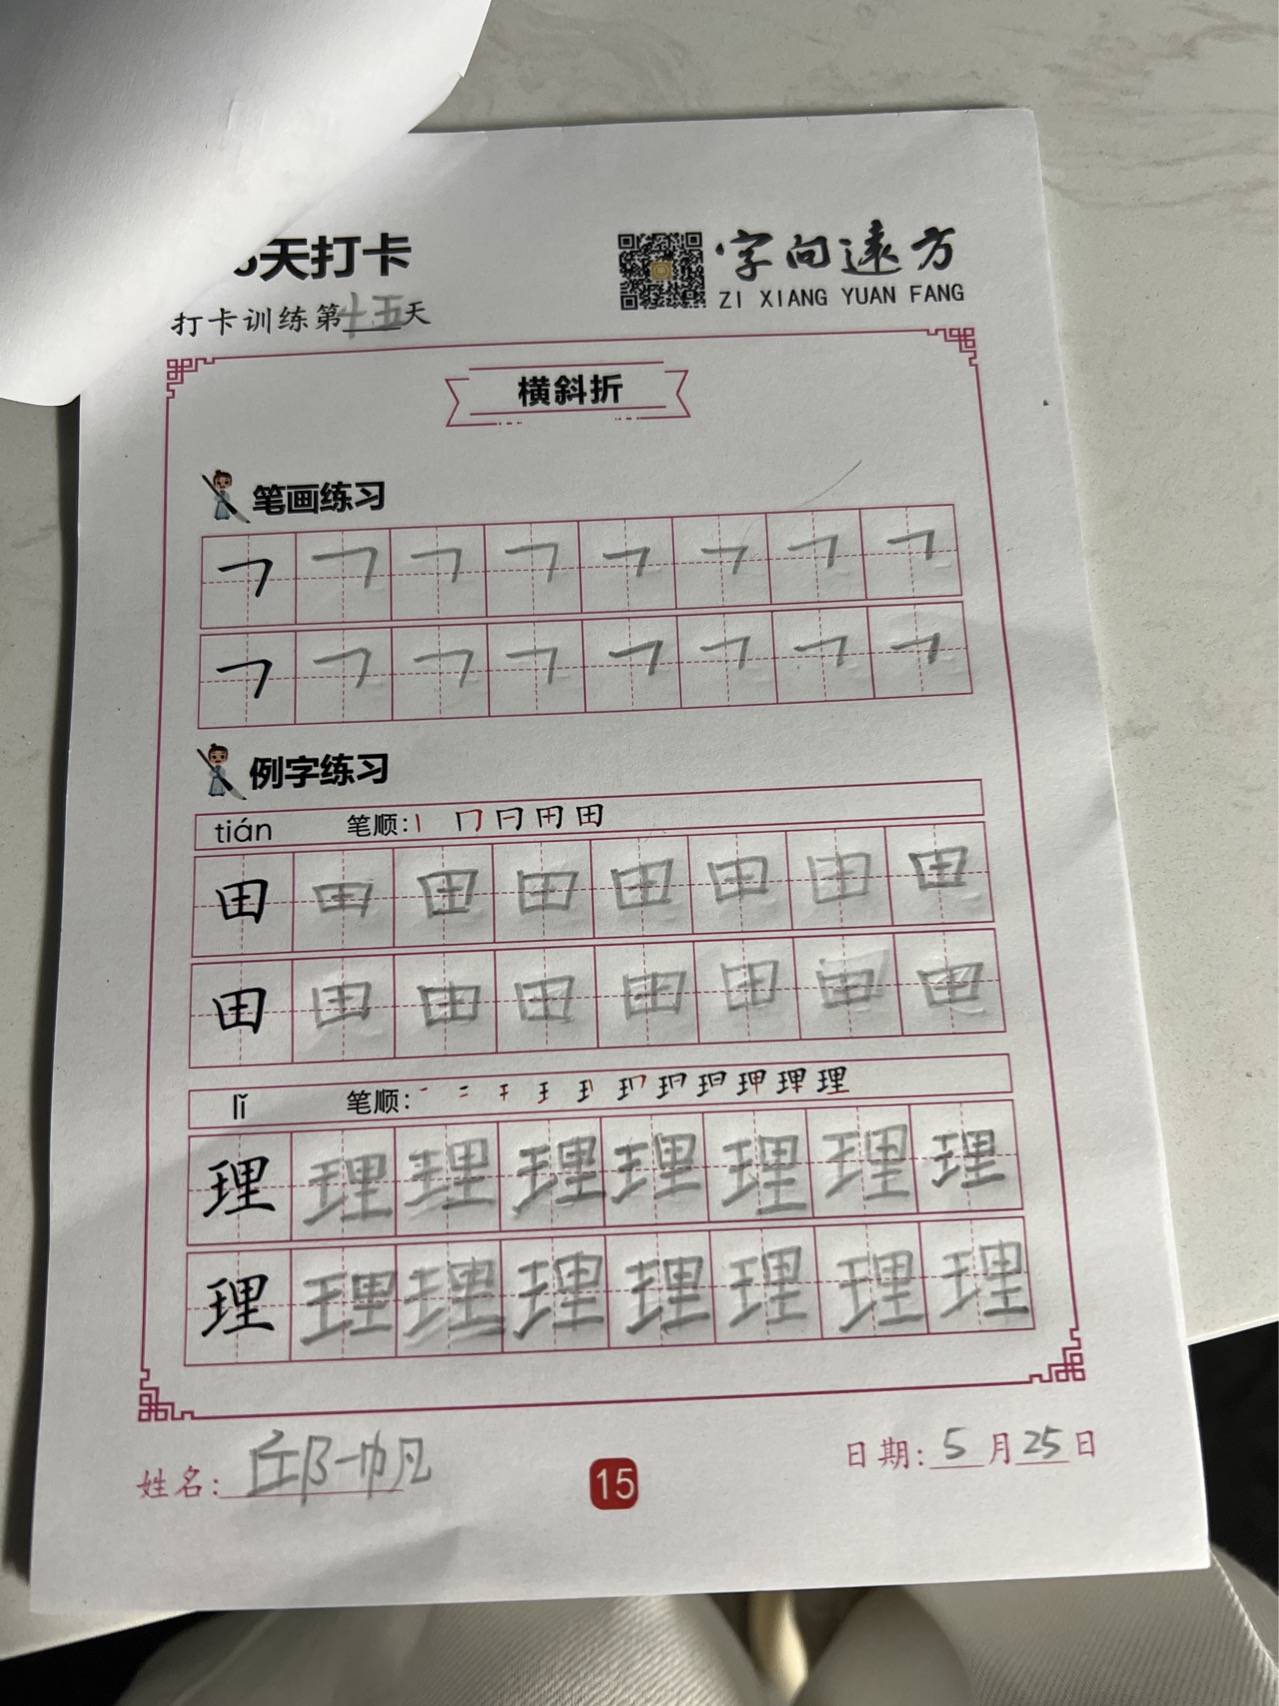 天打卡
字向遠方
ZI XIANG YUAN FANG
打卡训练第十五天
横斜折
笔画练习
㇕ ㇕ ㇕ ㇕ ㇕ ㇕ ㇕ ㇕
㇕ ㇕ ㇕ ㇕ ㇕ ㇕ ㇕ ㇕
例字练习
tián 笔顺: 丨 冂 冃 田 田
田 田 田 田 田 田 田 田
田 田 田 田 田 田 田 田
lǐ 笔顺: 理
理 理 理 理 理 理 理 理
理 理 理 理 理 理 理 理
姓名: 邱一帆
15
日期: 5 月 25 日